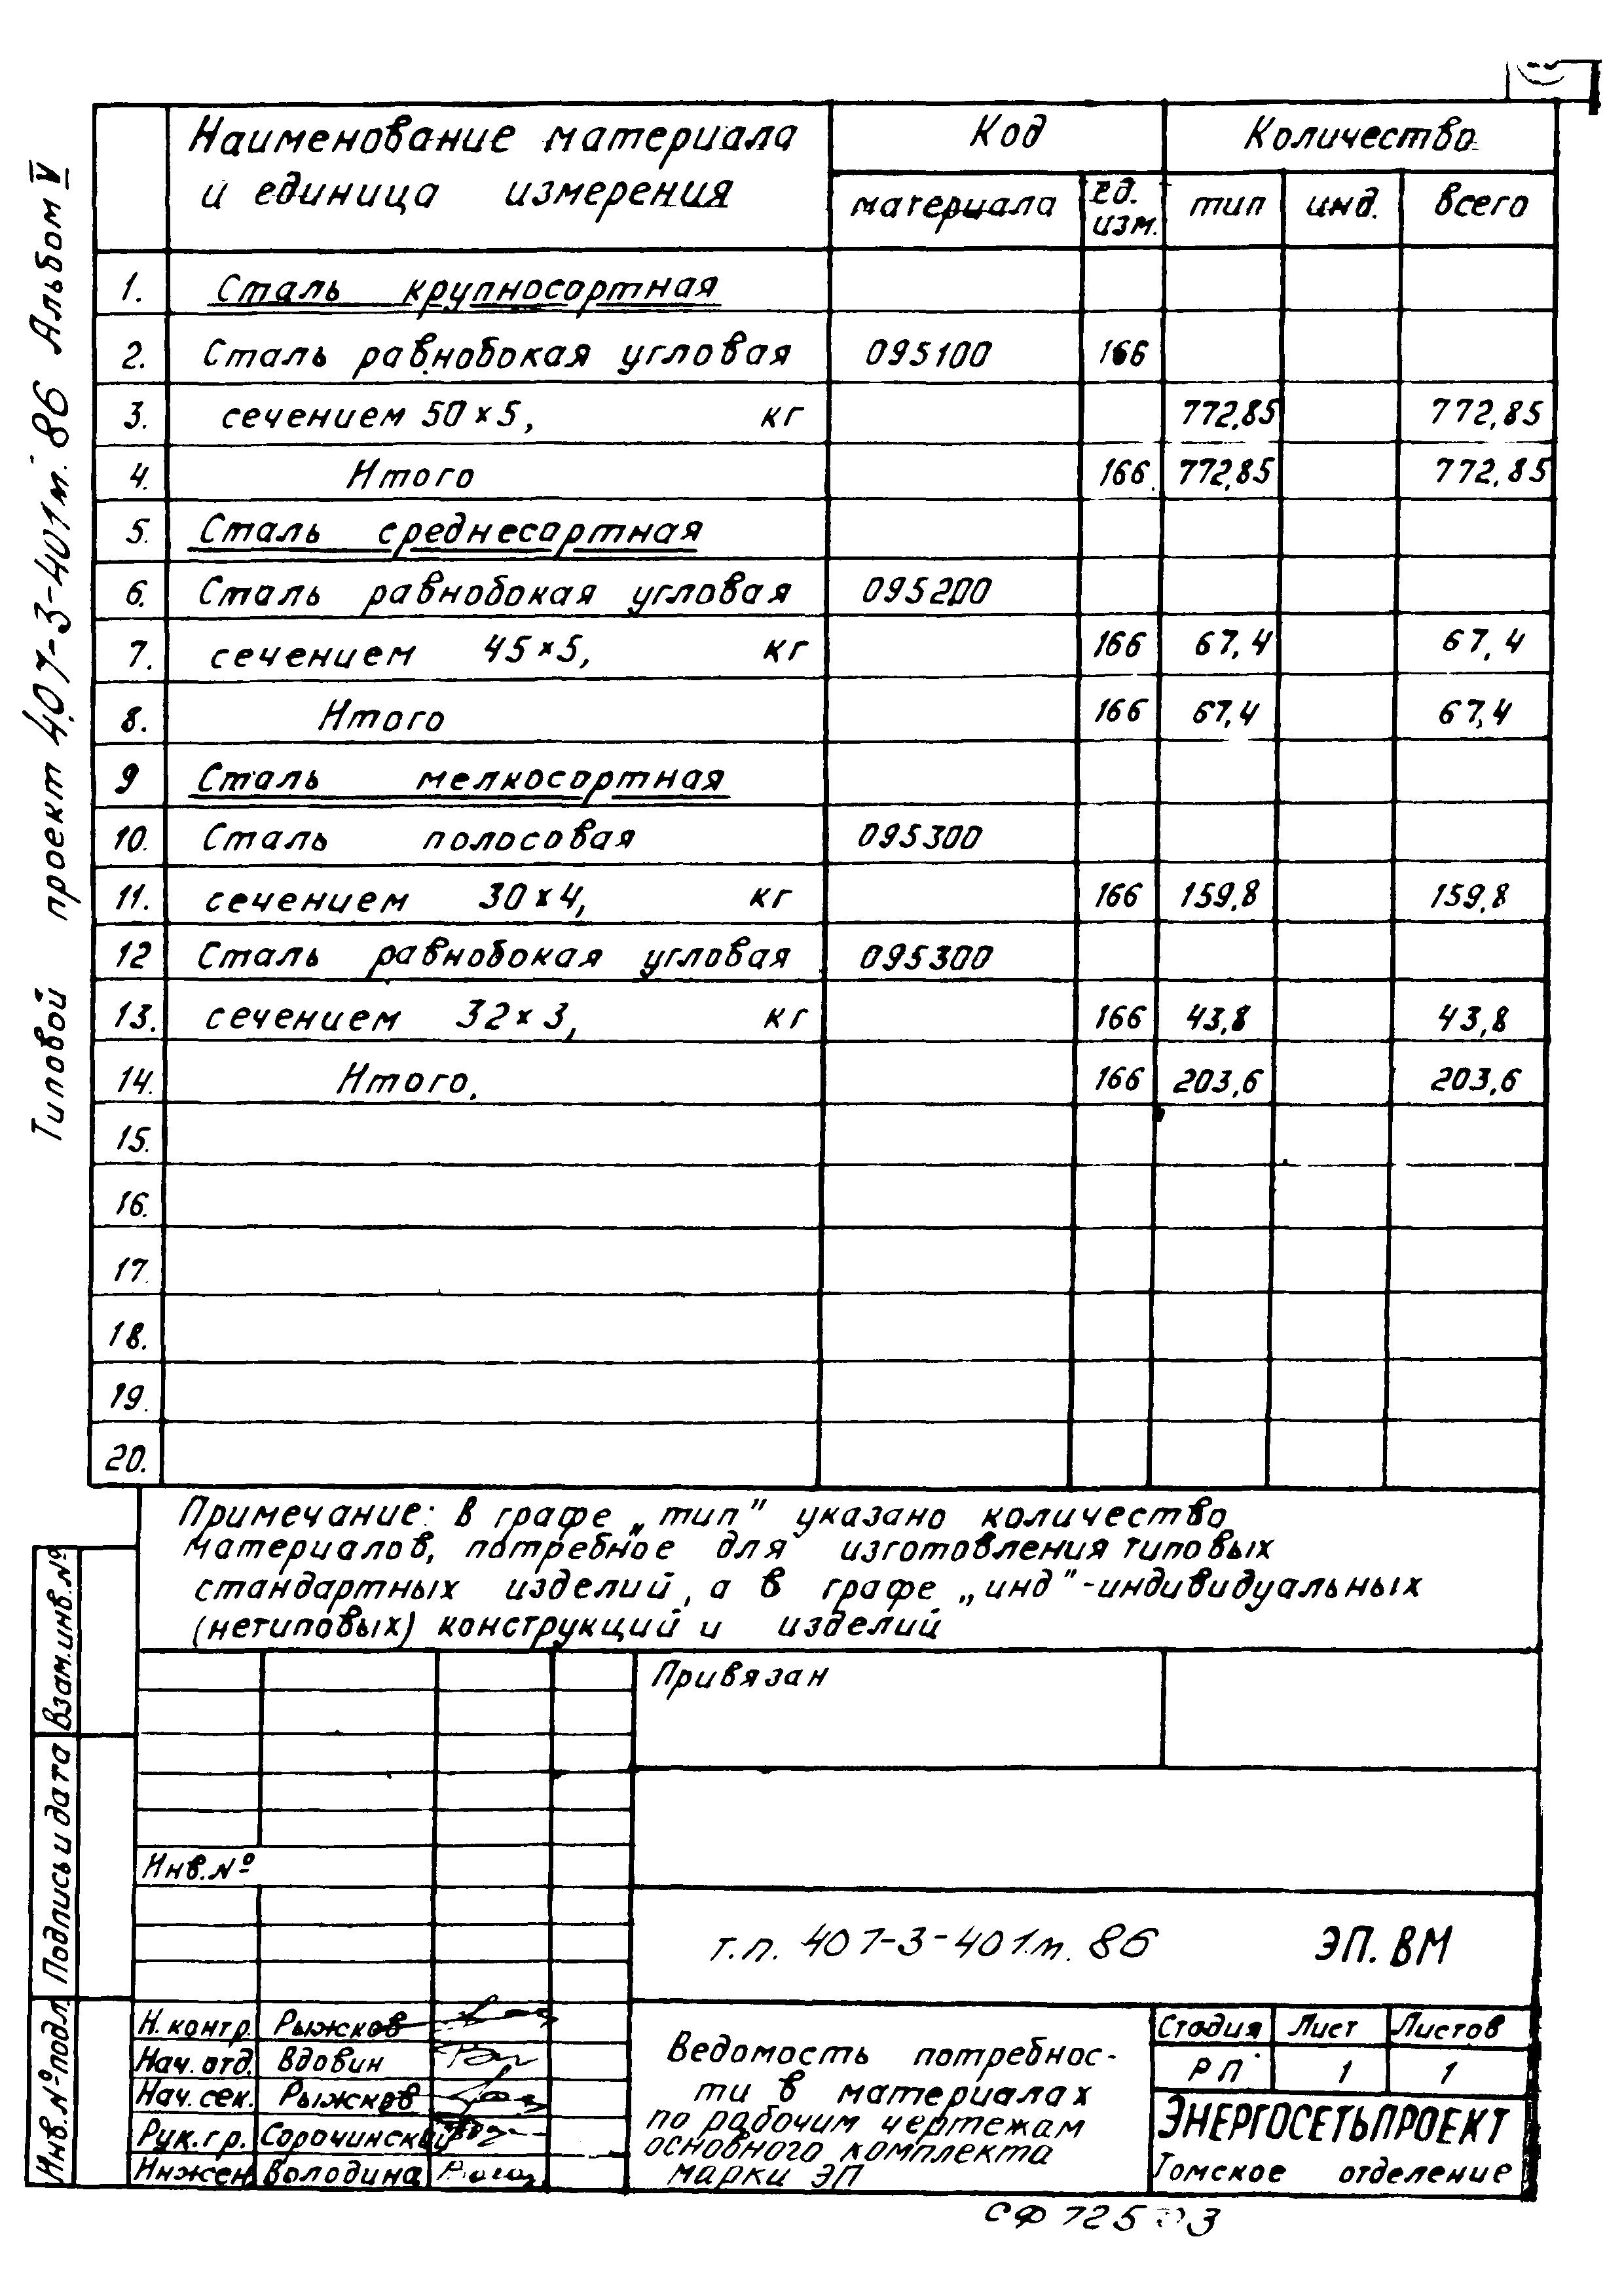 Типовой проект 407-3-401м.86 Альбом V
Наименование материала и единица измерения Код Количество
материала ед. изм. тип инд. всего
1. Сталь крупносортная
2. Сталь равнобокая угловая 095100 166
3. сечением 50×5, кг 772,85 772,85
4. Итого 166 772,85 772,85
5. Сталь среднесортная
6. Сталь равнобокая угловая 095200
7. сечением 45×5, кг 166 67,4 67,4
8. Итого 166 67,4 67,4
9 Сталь мелкосортная
10. Сталь полосовая 095300
11. сечением 30×4, кг 166 159,8 159,8
12 Сталь равнобокая угловая 095300
13. сечением 32×3, кг 166 43,8 43,8
14. Итого. 166 203,6 203,6
15.
16.
17.
18.
19.
20.
Примечание: в графе „тип" указано количество
материалов, потребное для изготовления типовых
стандартных изделий, а в графе „инд"-индивидуальных
(нетиповых) конструкций и изделий
Взам.инв.№
Подпись и дата
Инв.№подл.
Привязан
Инв.№
т.п. 407-3-401.м.86 ЭП.ВМ
Н.контр. Рыжков
Нач.отд. Вдовин
Нач.сек. Рыжков
Рук.гр. Сорочинский
Инжен. Володина
Ведомость потребнос-
ти в материалах
по рабочим чертежам
основного комплекта
марки ЭП
Стадия Лист Листов
РП 1 1
ЭНЕРГОСЕТЬПРОЕКТ
Томское отделение